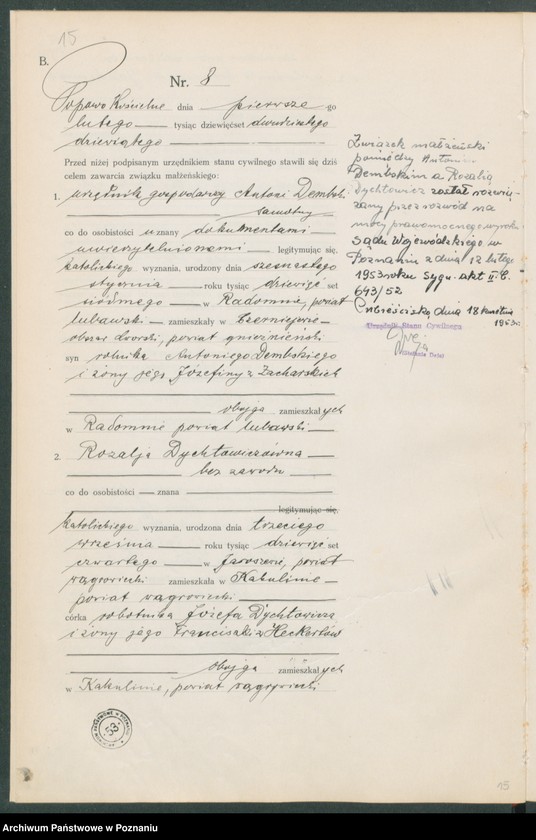 15
B.
Nr. 8
Popowo Kościelne dnia pierwszego
lutego tysiąc dziewięćset dwudziestego
dziewiątego
Przed niżej podpisanym urzędnikiem stanu cywilnego stawili się dziś
celem zawarcia związku małżeńskiego:
1. urzędnik gospodarczy Antoni Dembski
samotny
co do osobistości uznany dokumentami
uwierzytelnionemi legitymując się.
katolickiego wyznania, urodzony dnia szesnastego
stycznia roku tysiąc dziewięć set
siódmego w Radomnie, powiat
lubawski zamieszkały w Czerniejewie
obszar dworski, powiat gnieźnieński
syn rolnika Antoniego Dembskiego
i żony jego Józefiny z Zacharskich
obojga zamieszkałych
w Radomnie powiat lubawski
2. Rozalja Dychtowiczówna
bez zawodu
co do osobistości znana
legitymując się.
katolickiego wyznania, urodzona dnia trzeciego
września roku tysiąc dziewięć set
czwartego w Jaroszewie, powiat
wągrowiecki zamieszkała w Kakulinie
powiat wągrowiecki
córka robotnika Józefa Dychtowicza
i żony jego Franciszki z Heckertów
obojga zamieszkałych
w Kakulinie, powiat wągrowiecki
Związek małżeński
pomiędzy Antonim
Dembskim a Rozalią
Dychtowicz został rozwią-
zany przez rozwód na
mocy prawomocnego wyroku
Sądu Wojewódzkiego w
Poznaniu z dnia 12 lutego
1953 roku sygn. akt II. C.
693/52
dnia 18 kwietnia
1953r.
Urzędnik Stanu Cywilnego
53
15
Archiwum Państwowe w Poznaniu